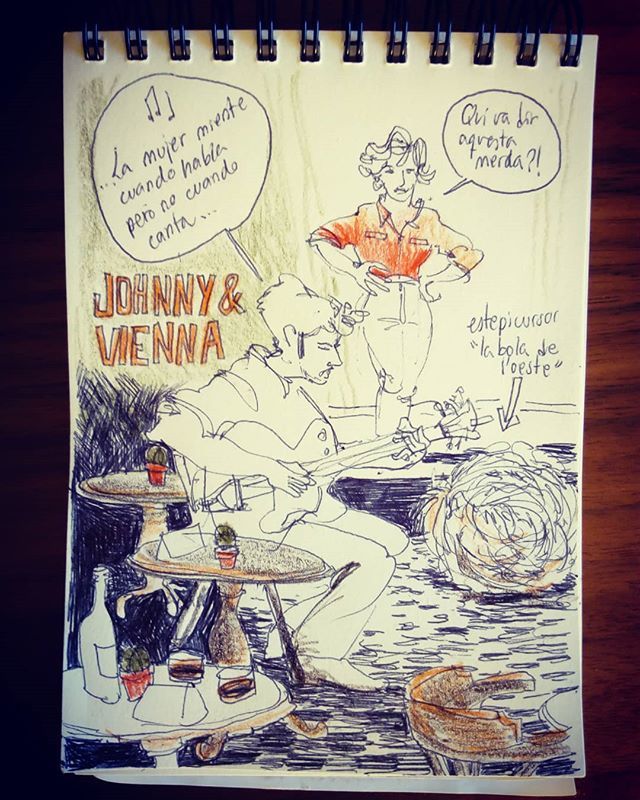 ...La mujer miente
cuando habla
pero no cuando
canta...
Qui va dir
aquesta
merda?!
JOHNNY &
VIENNA
estepicursor
"la bola de
l'oeste"